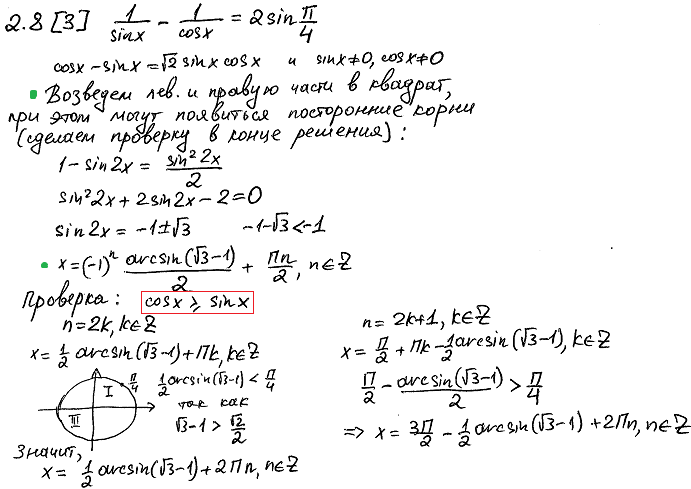 2.8 [3] 1/sinx − 1/cosx = 2sin π/4
cosx − sinx = √2 sinx cosx и sinx≠0, cosx≠0
• Возведем лев. и правую части в квадрат,
при этом могут появиться посторонние корни
(сделаем проверку в конце решения):
1 − sin2x = sin²2x/2
sin²2x + 2sin2x − 2 = 0
sin2x = −1±√3 −1−√3 < −1
• x = (−1)ⁿ arcsin(√3−1)/2 + Πn/2, n∈Z
Проверка: cosx ⩾ sinx
n=2k, k∈Z
x = 1/2 arcsin(√3−1) + Πk, k∈Z
I III π/4 1/2 arcsin(√3−1) < π/4
так как
√3−1 > √2/2
Значит,
x = 1/2 arcsin(√3−1) + 2Πn, n∈Z
n = 2k+1, k∈Z
x = Π/2 + Πk − 1/2 arcsin(√3−1), k∈Z
Π/2 − arcsin(√3−1)/2 > Π/4
=> x = 3Π/2 − 1/2 arcsin(√3−1) + 2Πn, n∈Z